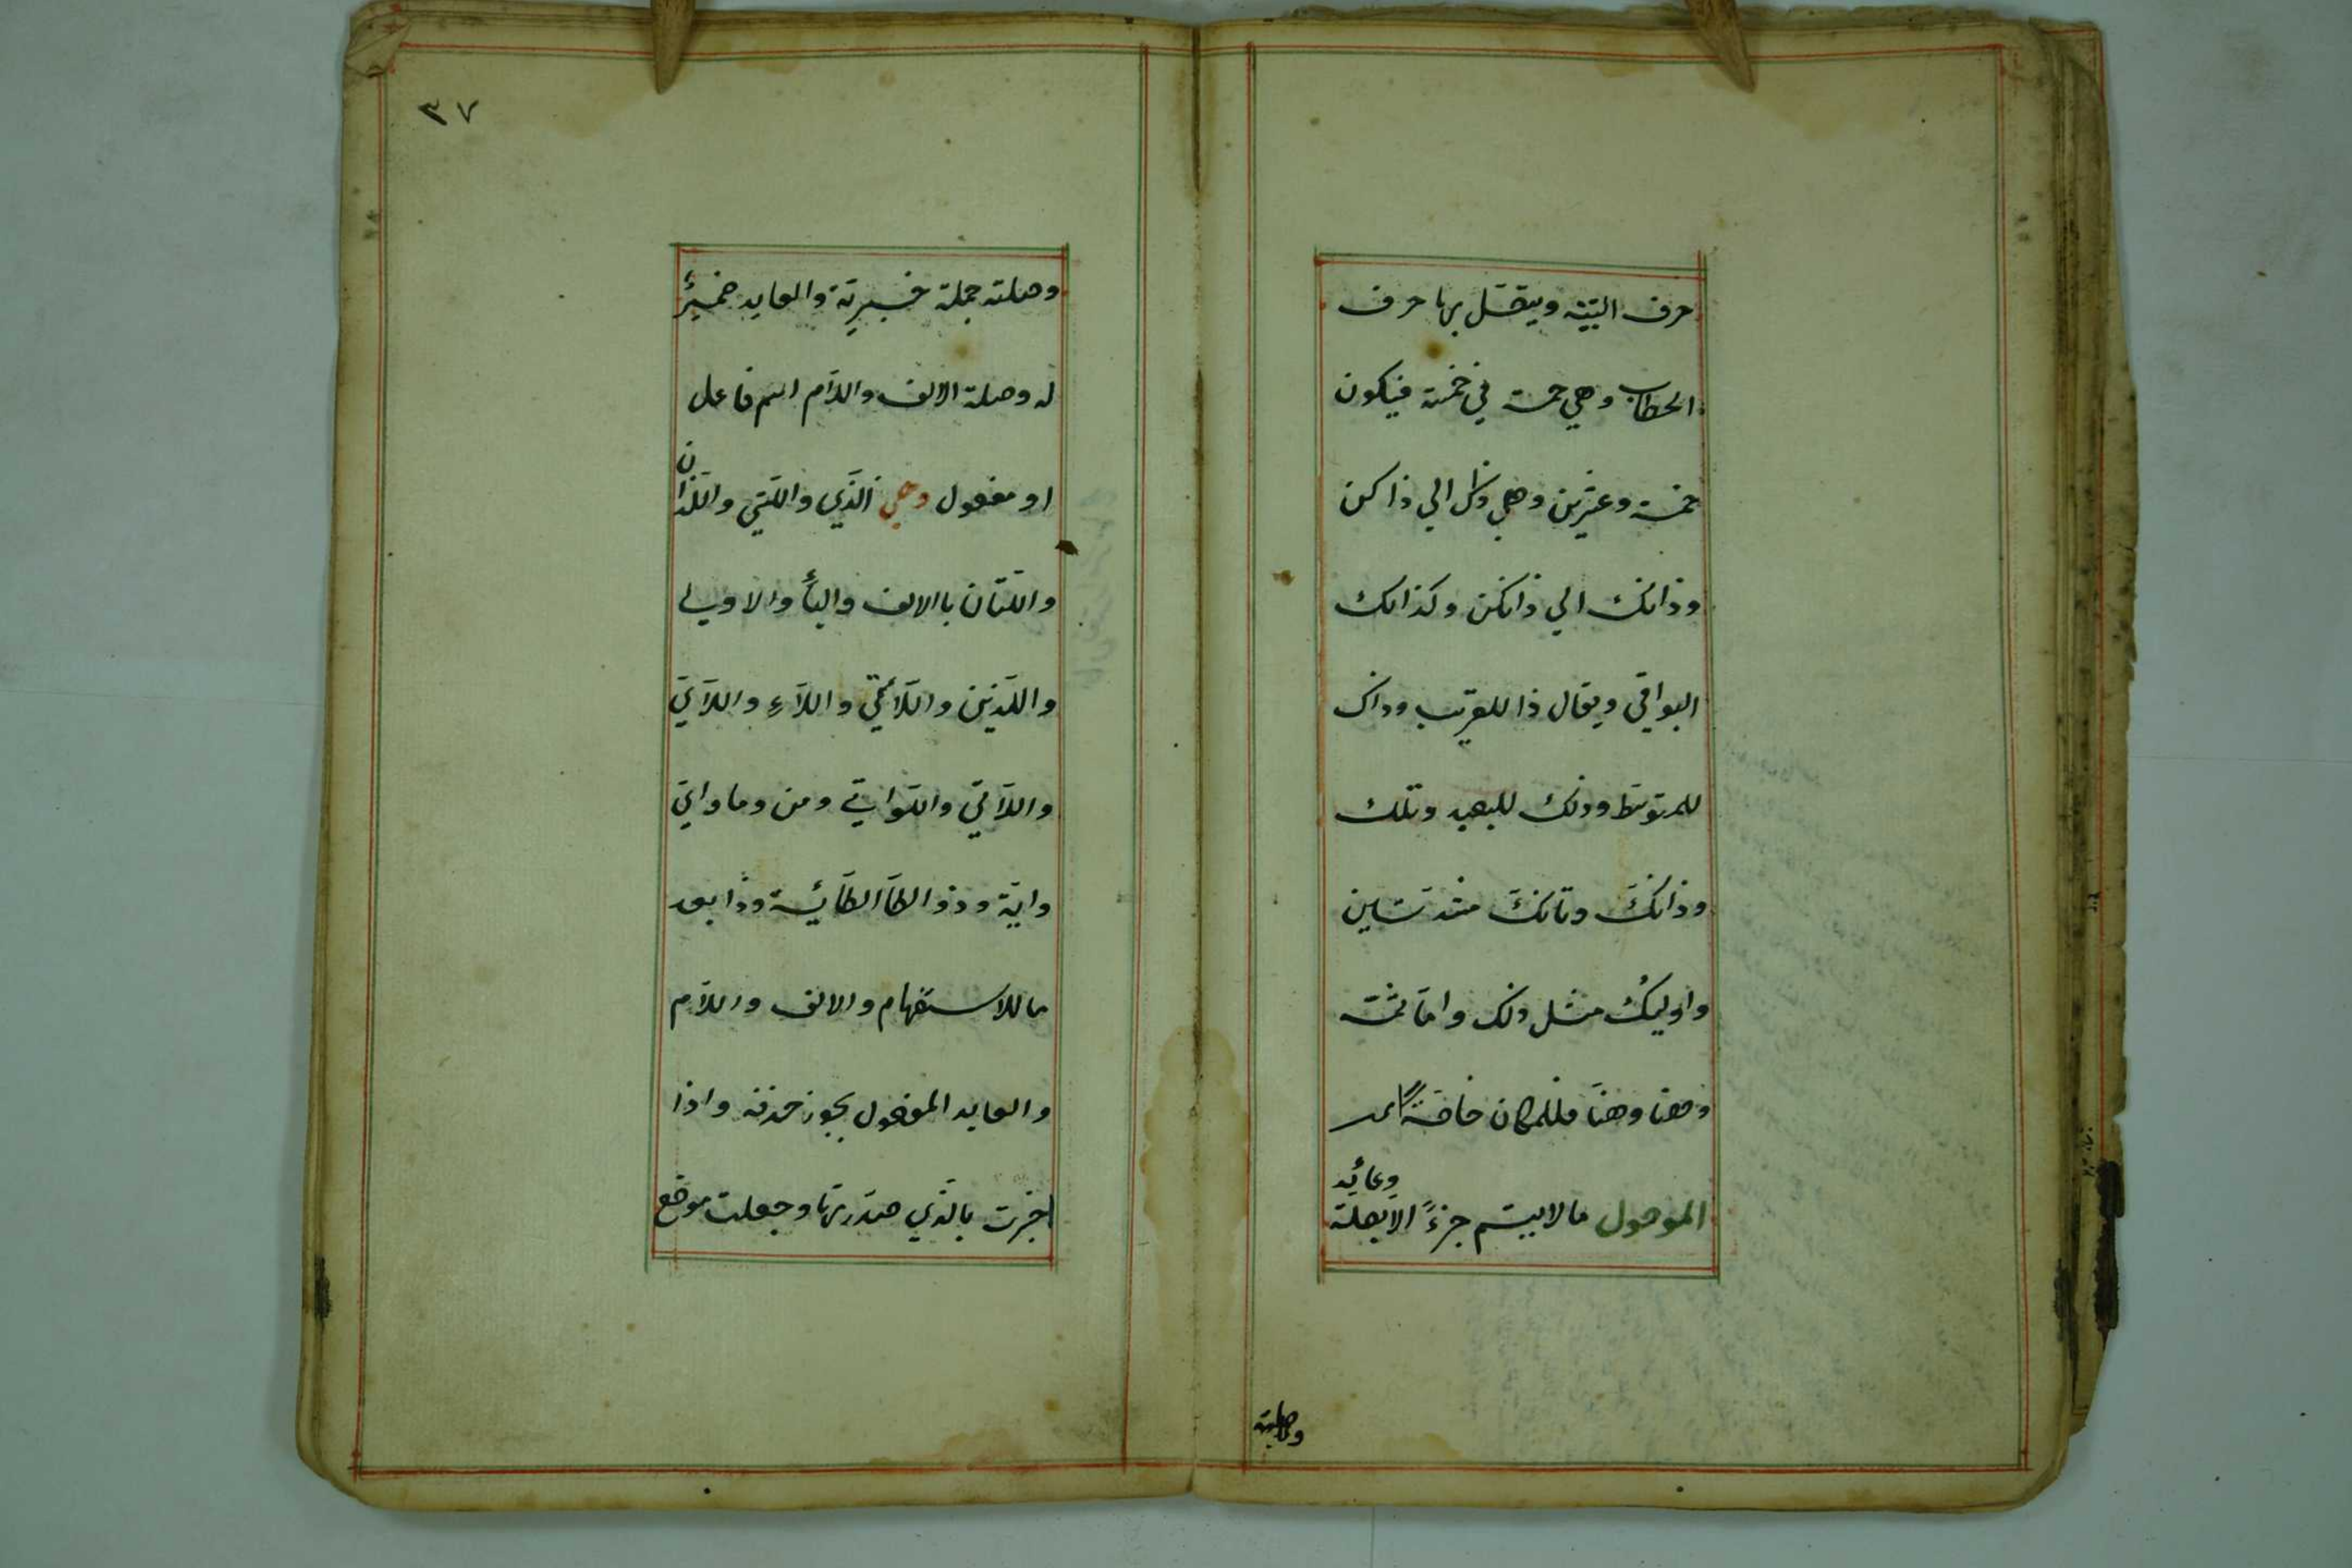 حرف التنبيه ويتصل بها حرف
الخطاب وهي خمسة في خمسة فيكون
خمسة وعشرين وهي ذاك الي ذاكن
وذانك الي ذانكن وكذالك
البواقي ويقال ذا للقريب وذاك
للمتوسط وذلك للبعيد وتلك
وذانّك وتانّك مشددتين
واوليك مثل ذلك وامّا ثمّة
وهنا وهنّا فللمكان خاصّةً
وعايد
الموصول ما لا يتم جزءً الا بصلة
وصلته
٣٧
وصلته جملة خبريّة والعايد ضميرٌ
له وصلة الالف واللّام اسم فاعل
ن
او مفعول وهي الّذي والّتي والّلذا
والّلتان باالالف والياء والاولي
والّلذين والّلائي والّلاءِ والّلايَ
والّلاتي والّلواتي ومن وما وايّ
وايّة وذو الطا الطّائيّة وذا بعد
ما للاستفهام والالف والّلام
والعايد المفعول يجوز حذفه واذا
اخبرت باالّذي صدّرتها وجعلت موضع